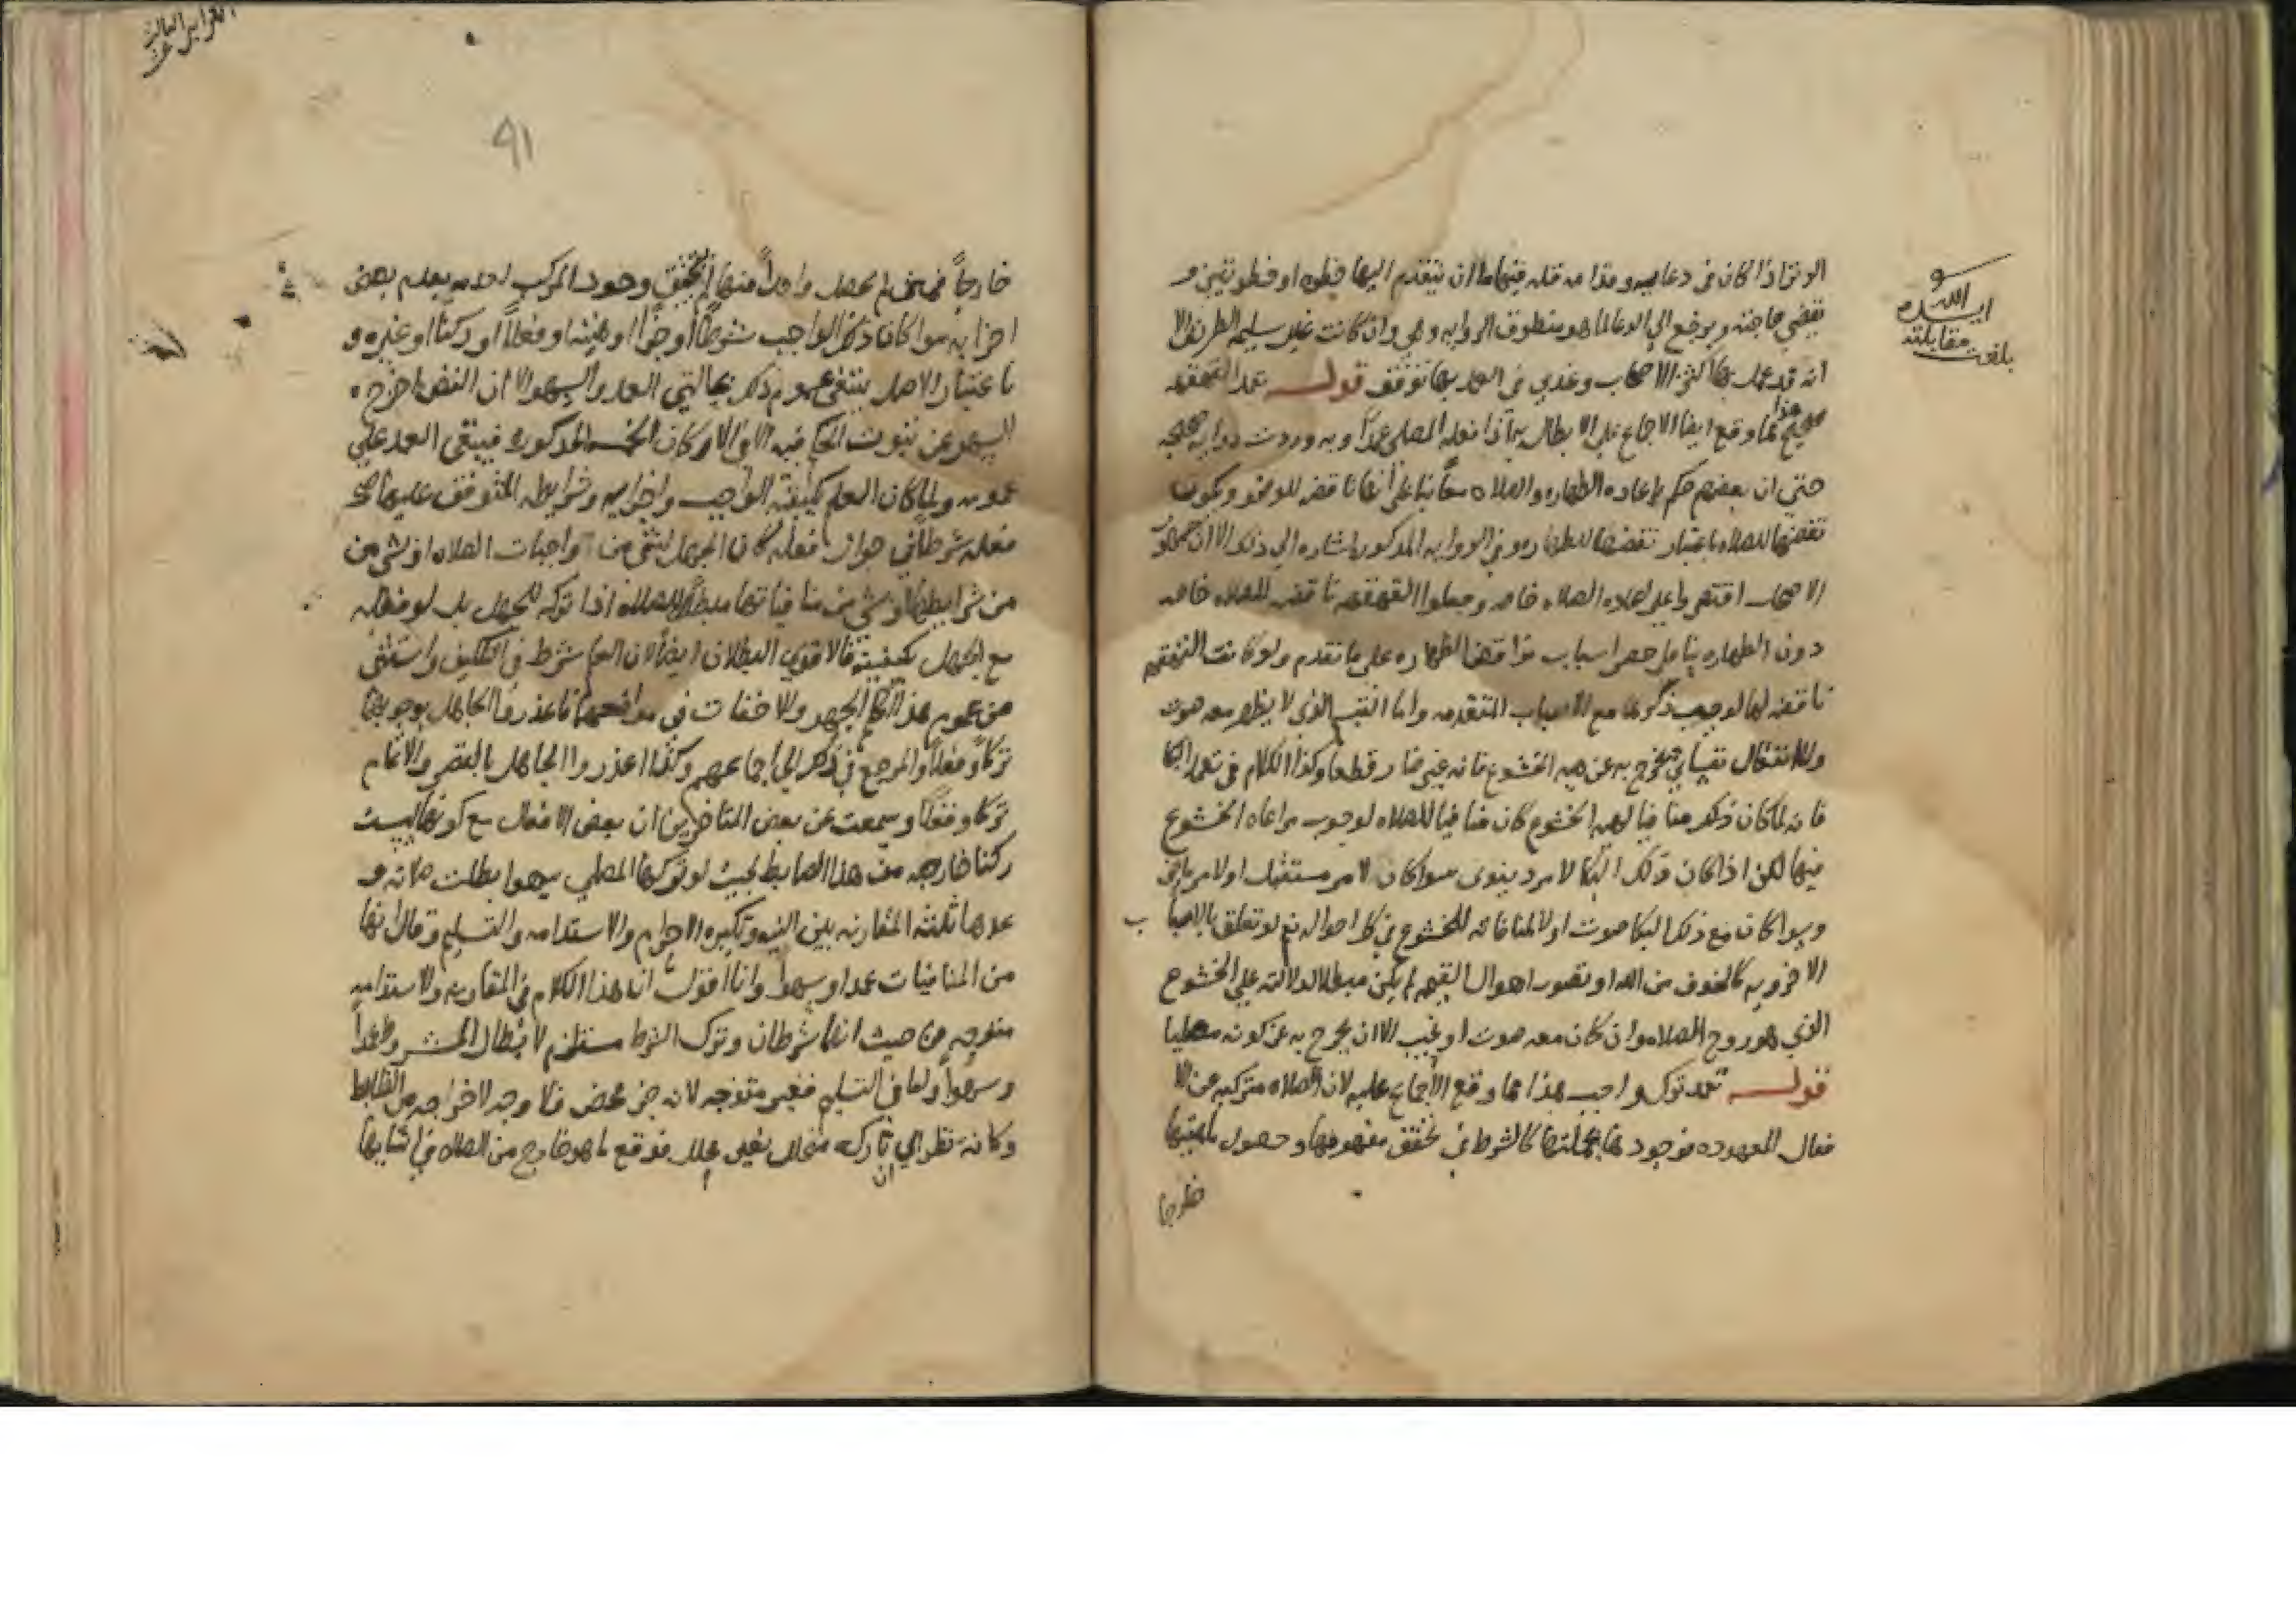 الوتر اذا كان فى دعايه وقدامه قله فيها ما ان يتقدم اليها خطوه او خطوتين و
يقضى حاجته ويرجع الى الدعا كما هو منطوق الروايه وهى وان كانت غير سليمه الطريق الا
انه قد عمل بها اكثر الاصحاب وعندى فى العمل بها توقف قوله تعمد القهقهه
هذا
صحيح مما وقع ايضا الاجماع على الابطال به اذا فعله المصلى عمدا وبه وردت روايه صحيحه
حتى ان بعضهم حكم باعاده الطهاره والصلاه معا بنا على انها ناقضه للوضو ويكون
نقضها للصلاه باعتبار نقضها للطهاره وفى الروايه المذكوره اشاره الى ذلك الا ان جمهور
الاصحاب اقتصروا على اعاده الصلاه خاصه وجعلوا القهقهه ناقضه للصلاه خاصه
دون الطهاره بنا على حصر اسباب نواقض الطهاره على ما تقدم ولو كانت القهقهه
ناقضه لها لوجب ذكرها مع الاسباب المتقدمه واما التبسم الذى لا يظهر معه صوت
ولا انتقال يخرج به عن هيه الخشوع فانه غير ضار قطعا وكذا الكلام فى تعمد البكا
فانه لما كان ذكره منافيا لهيه الخشوع كان منافيا للصلاه لوجوب مراعاه الخشوع
فيها لكن اذا كان ذلك البكا لامر دنيوى سوا كان لامر مستقبل او لامر ماض
وسوا كان مع ذلك البكا صوت اولا لمنافاته للخشوع فى كل احواله نعم لو تعلق بالاسباب
الاخرويه كالخوف من الله او تصور اهوال القيمه لم يكن مبطلا لدلالته على الخشوع
الذى هو روح الصلاه وان كان معه صوت او نحيب الا ان يخرج به عن كونه مصليا
قوله تعمد ترك واجب هذا مما وقع الاجماع عليه لان الصلاه متركبه من الا
فعال المعهوده فوجودها بجملتها كالشرط فى تحقق مفهومها وحصول ماهيتها
خارجا
ايده الله
بلغت مقابلته
91
خارجاً فمتى لم يحصل واحداً منها لم يتحقق وجود المركب لعدمه بعدم بعض
اجزايه سوا كان ذلك الواجب شرطاً او جزأ او هيئه او فعلاً او ركنا او غيره و
باعتبار الاصل ينتفى عموم ذلك بحالتى العمد والسهو الا ان النص اخرج
السهو عن ثبوت الحكم فيه الا فى الاركان الخمسه المذكوره فيبقى العمد على
عمومه ولما كان العلم بكيفيه الواجب واجزايه وشرايطه المتوقف عليها صحه
فعله شرطاً فى جواز فعله كان الجهل بشى من واجبات الصلاه او بشى من
من شرايطها او بشى من منافياتها مبطلاً للصلاه اذا تركه للجهل بل لو فعله
مع الجهل بكيفيته فالاقوى البطلان ايضاً لان العلم شرط فى التكليف واستثنى
من عموم هذا الحكم الجهر والاخفات فى مواضعهما فاعذروا الجاهل بوجوبهما
تركاً وفعلاً والمرجع فى ذلك الى اجماعهم وكذا اعذروا الجاهل بالقصر والاتمام
تركا وفعلا وسمعت عن بعض المتاخرين ان بعض الافعال مع كونها ليست
ركنا خارجه من هذا الضابط بحيث لو تركها المصلى سهوا بطلت صلاته و
عدها ثلثه المقارنه بين النيه وتكبيره الاحرام والاستدامه والتسليم وقال انها
من المنافيات عمدا وسهوا وانا اقول ان هذا الكلام فى المقارنه والاستدامه
متوجه من حيث انهما شرطان وترك الشرط مستلزم لابطال المشروط عمداً
وسهواً واما فى التسليم فغير متوجه لانه جزء محض فلا وجه لاخراجه من الضابط
وكانه نظر الى ان تاركه متحلل بغير محلل فوقع ما هو خارج من الصلاه فى اثنايها